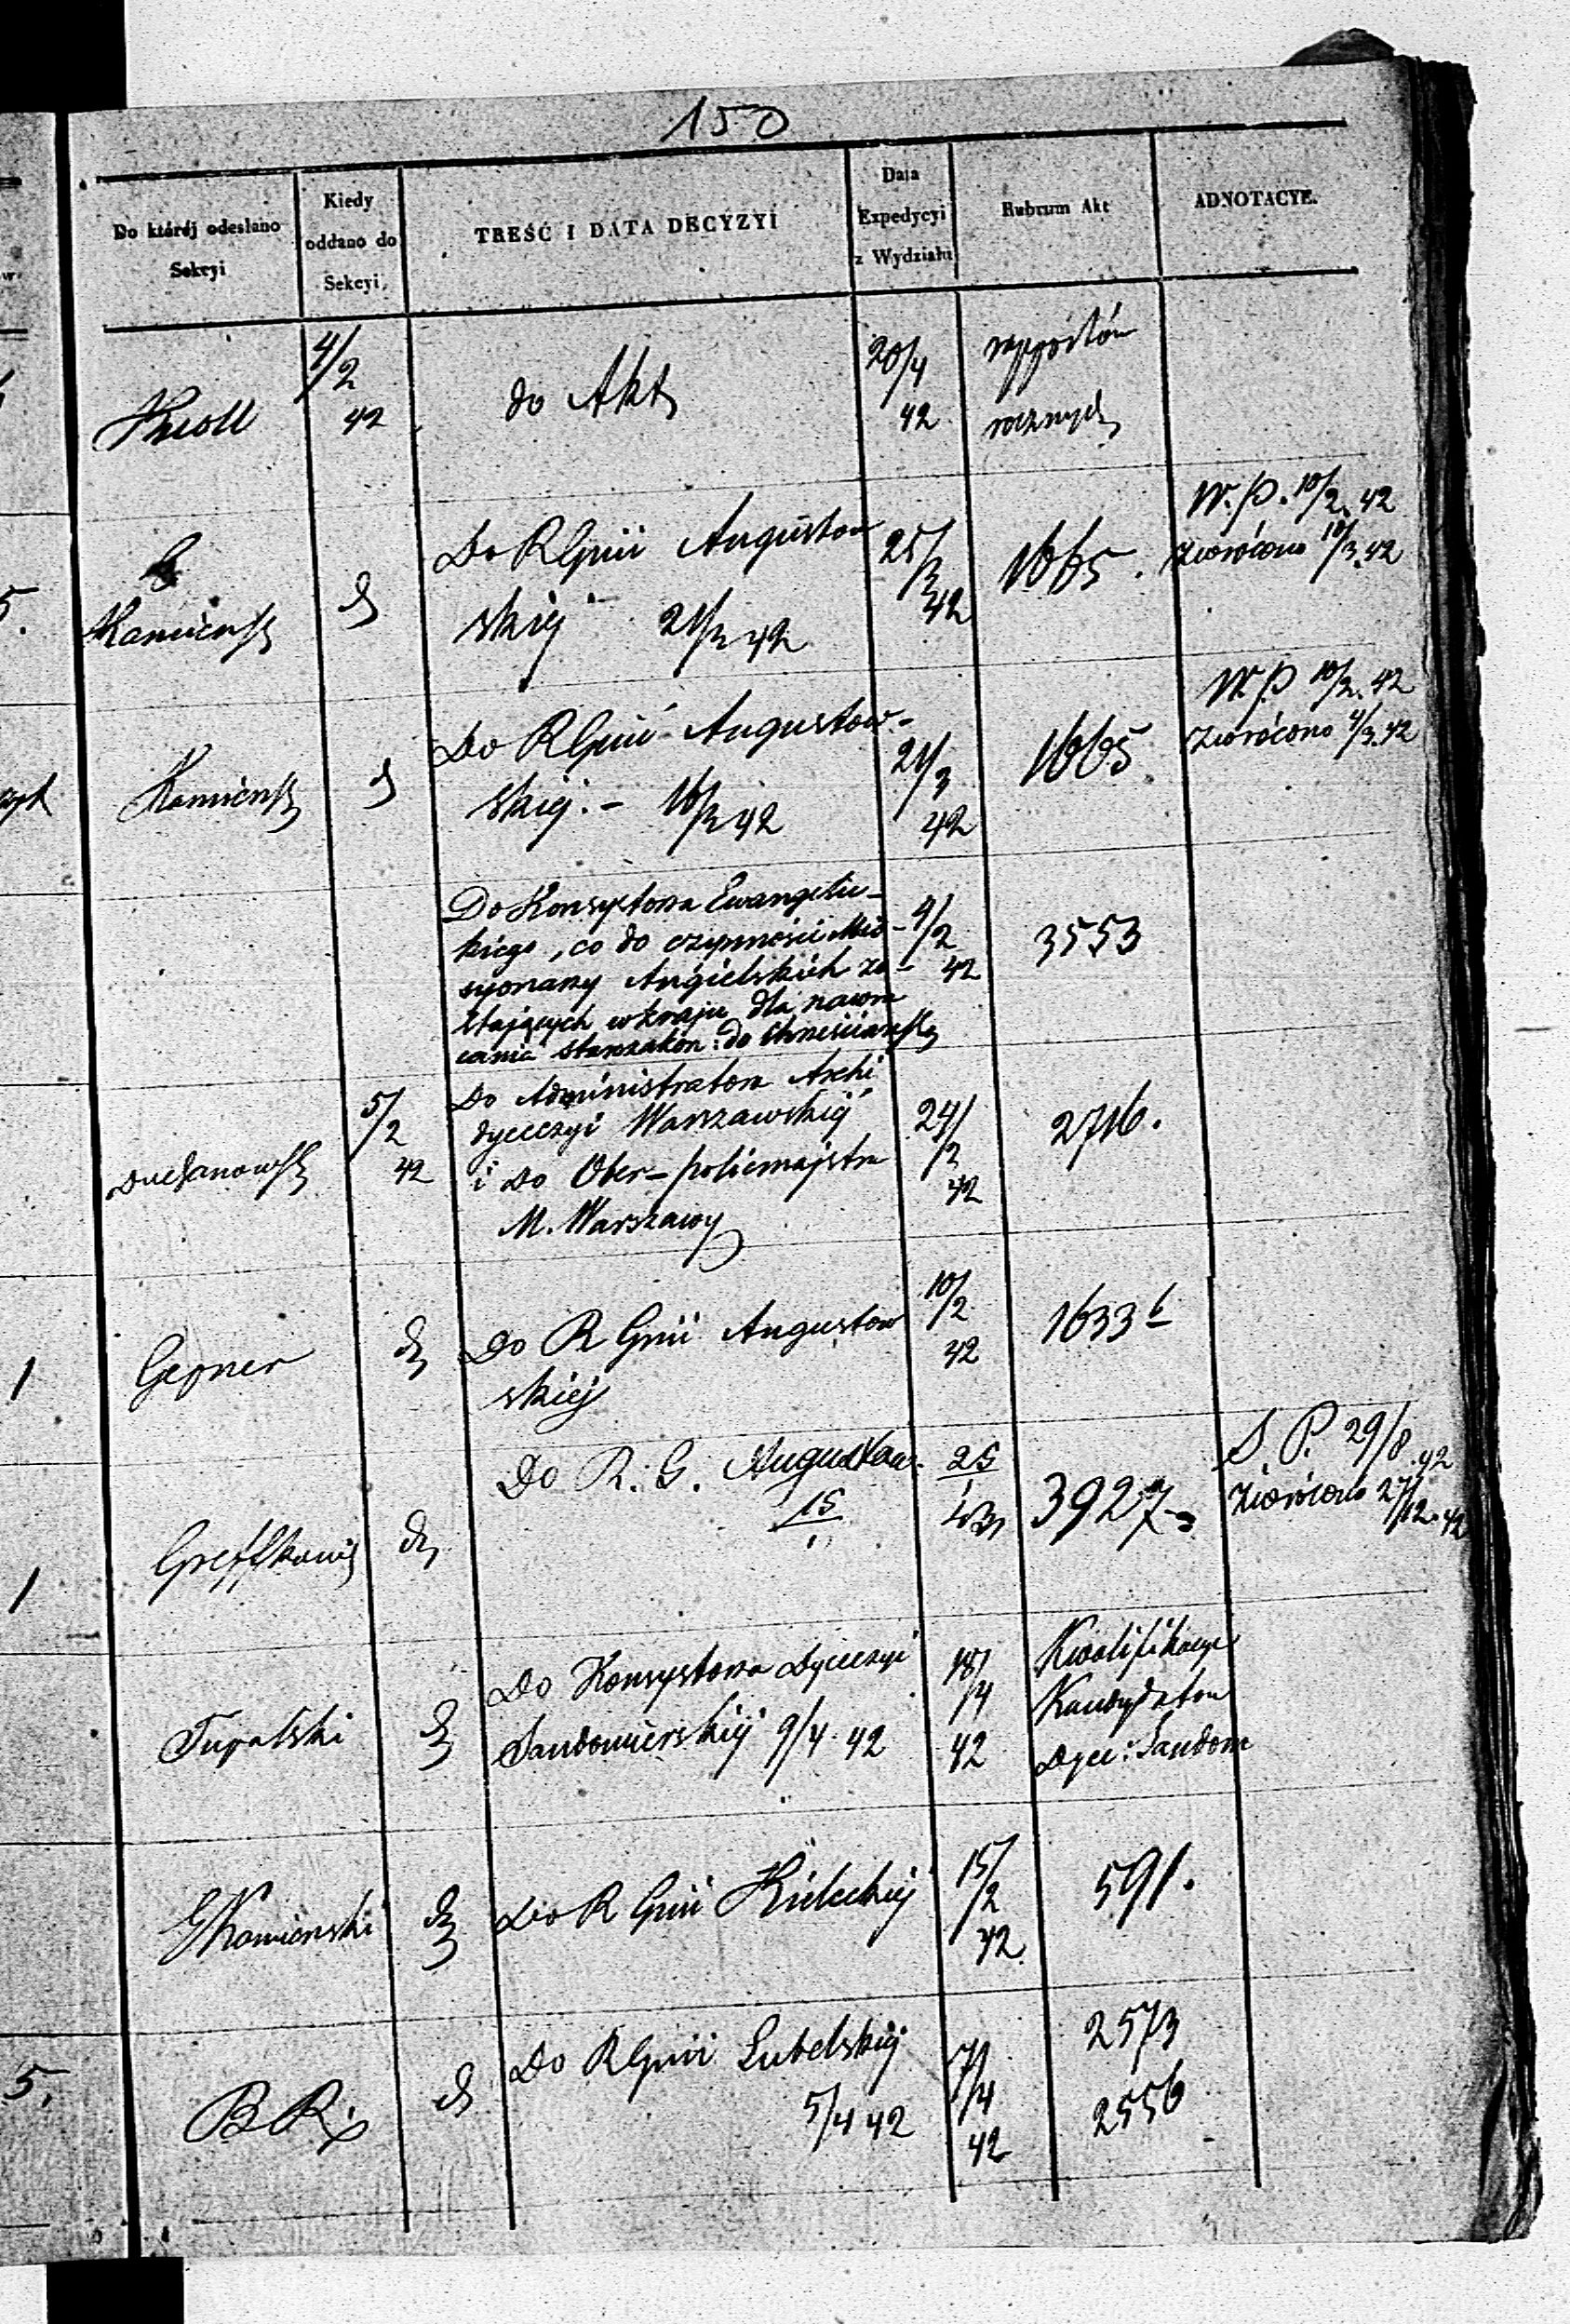 150
Do któréj odesłano
Sekcyi
Kiedy
oddano do
Sekcyi.
TREŚĆ I DATA DECYZYI
Data
Expedycyi
z Wydziału
Rubrum Akt
ADNOTACYE.
4/2
42
do Akt
20/4
42
rapportów
rocznych
Kamieńsk
d
Do RGnii Augustow
skiej 21/3 42
25/3
42
1665.
W. P. 10/2. 42
Zwrócono 10/3. 42
Kamieńsk
d
Do RGnii Augustow-
skiej. - 16/3 42
21/3
42
1665
W. P 10/2. 42
Zwrócono 4/3. 42
Do Konsystorza Ewangelic-
kiego, co do czynności Mis-
syonarzy Angielskich zo-
stających w kraju dla nawra
cania starozakon: do chrześciańs
4/2
42
3553
5/2
42
Do Administratora Archi
dyecezyi Warszawskiej
i do Ober-policmajstra
M. Warszawy
24/2
42
2716.
Gepner
d
Do R Gnii Augustow
skiej
10/2
42
1633 b
d
Do R. G. Augustow.
15
25
3927
S. P. 29/8 42
Zwrócono 27/12. 42
Tupalski
d
Do Konsystorza Dyecezyi
Sandomierskiej 9/4 42
18/4
42
Kwalifikacye
Kandydatów
Dyec: Sandom
GKamieński
d
Do R Gnii Kieleckiej
15/2
42
591.
B R
d
Do RGnii Lubelskiej
5/4 42
7/4
42
2573
2556
5.